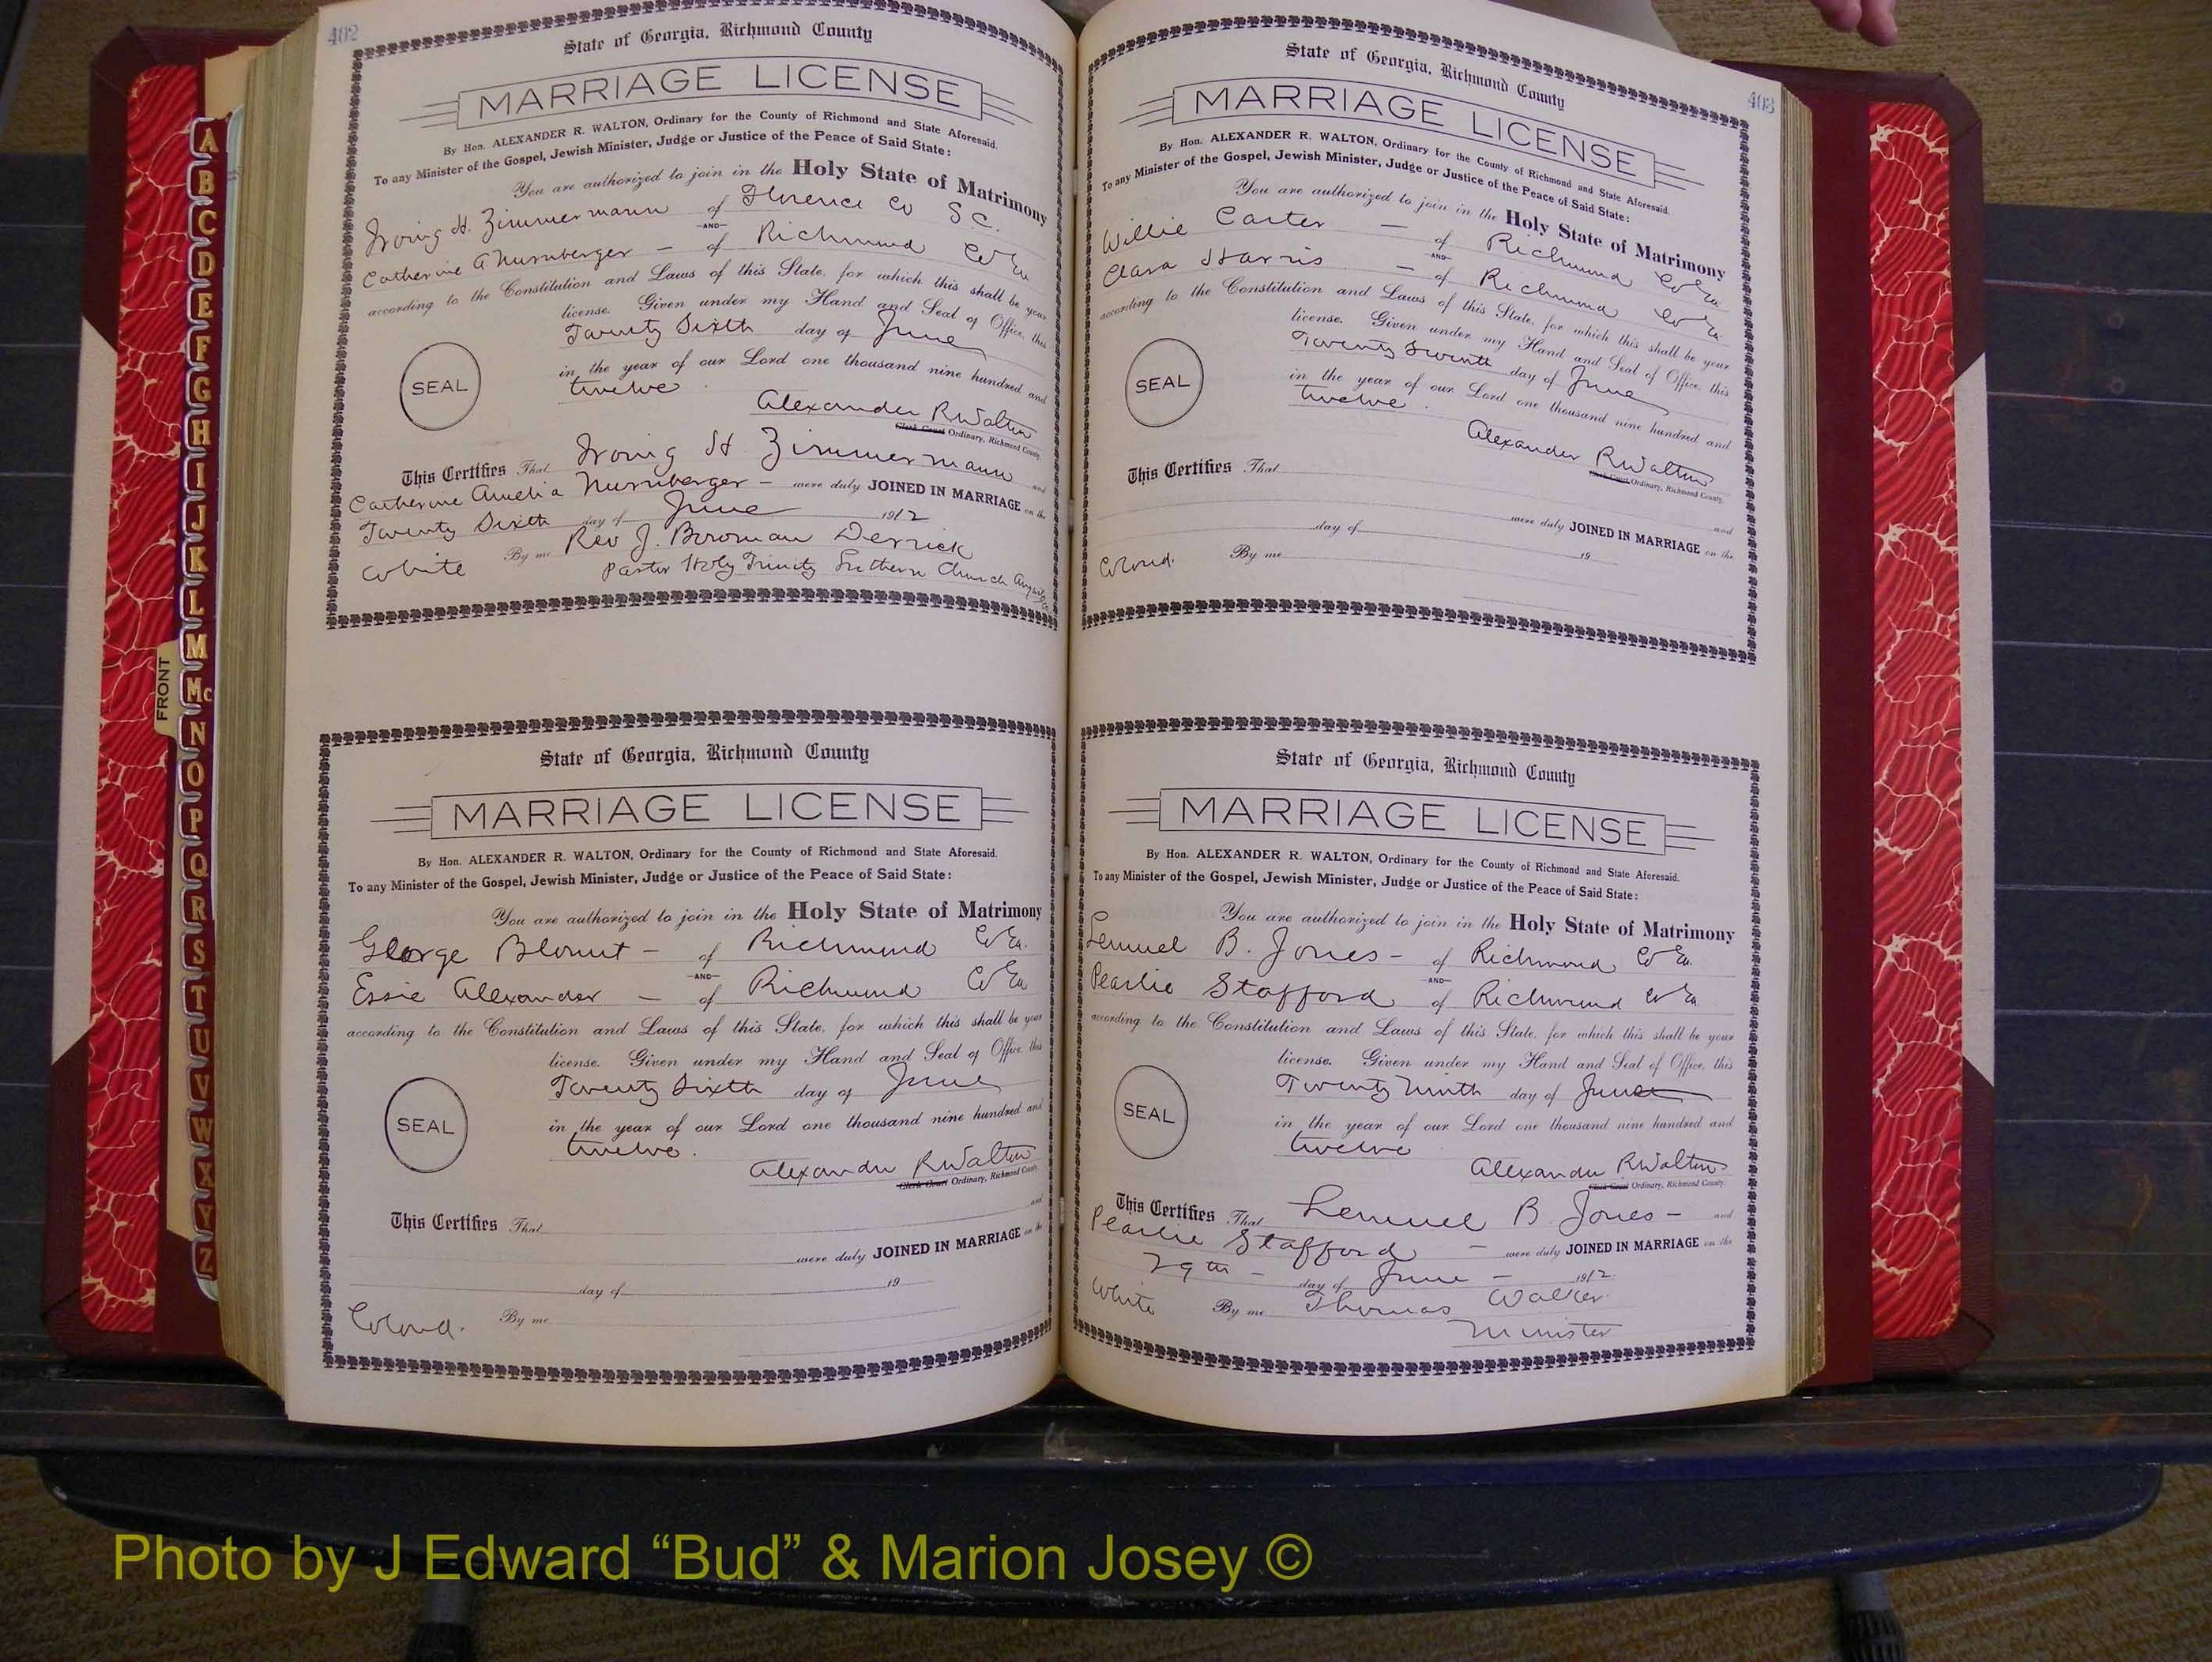 402
State of Georgia, Richmond County
MARRIAGE LICENSE
By Hon. ALEXANDER R. WALTON, Ordinary for the County of Richmond and State Aforesaid.
To any Minister of the Gospel, Jewish Minister, Judge or Justice of the Peace of Said State:
You are authorized to join in the Holy State of Matrimony
Irving H. Zimmermann of Florence Co S.C.
—AND—
Catherine A Nurnberger — of Richmond Co Ga
according to the Constitution and Laws of this State, for which this shall be your
license. Given under my Hand and Seal of Office, this
Twenty Sixth day of June
in the year of our Lord one thousand nine hundred and
twelve.
SEAL
Alexander R Walton
Clerk Court Ordinary, Richmond County.
This Certifies That Irving H Zimmermann and
Catherine Amelia Nurnberger — were duly JOINED IN MARRIAGE on the
Twenty Sixth day of June 1912
White By me Rev J. Bowman Derrick
Pastor Holy Trinity Luthern Church Augusta
State of Georgia, Richmond County
MARRIAGE LICENSE
By Hon. ALEXANDER R. WALTON, Ordinary for the County of Richmond and State Aforesaid.
To any Minister of the Gospel, Jewish Minister, Judge or Justice of the Peace of Said State:
You are authorized to join in the Holy State of Matrimony
George Blount — of Richmond Co Ga.
—AND—
Essie Alexander — of Richmond Co Ga
according to the Constitution and Laws of this State, for which this shall be your
license. Given under my Hand and Seal of Office, this
Twenty Sixth day of June
in the year of our Lord one thousand nine hundred and
twelve.
SEAL
Alexander R Walton
Clerk Court Ordinary, Richmond County.
This Certifies That and
were duly JOINED IN MARRIAGE on the
day of 19
Colored. By me
403
State of Georgia, Richmond County
MARRIAGE LICENSE
By Hon. ALEXANDER R. WALTON, Ordinary for the County of Richmond and State Aforesaid.
To any Minister of the Gospel, Jewish Minister, Judge or Justice of the Peace of Said State:
You are authorized to join in the Holy State of Matrimony
Willie Carter — of Richmond Co Ga.
—AND—
Clara Harris — of Richmond Co Ga.
according to the Constitution and Laws of this State, for which this shall be your
license. Given under my Hand and Seal of Office, this
Twenty Seventh day of June
in the year of our Lord one thousand nine hundred and
twelve.
SEAL
Alexander R Walton
Clerk Court Ordinary, Richmond County.
This Certifies That and
were duly JOINED IN MARRIAGE on the
day of 19
Colored. By me
State of Georgia, Richmond County
MARRIAGE LICENSE
By Hon. ALEXANDER R. WALTON, Ordinary for the County of Richmond and State Aforesaid.
To any Minister of the Gospel, Jewish Minister, Judge or Justice of the Peace of Said State:
You are authorized to join in the Holy State of Matrimony
Lemuel B. Jones — of Richmond Co Ga.
—AND—
Pearlie Stafford of Richmond Co Ga.
according to the Constitution and Laws of this State, for which this shall be your
license. Given under my Hand and Seal of Office, this
Twenty Ninth day of June
in the year of our Lord one thousand nine hundred and
twelve
SEAL
Alexander R Walton
Clerk Court Ordinary, Richmond County.
This Certifies That Lemuel B. Jones — and
Pearlie Stafford — were duly JOINED IN MARRIAGE on the
29th — day of June — 1912.
White By me Thomas Walker
Minister
FRONT
A
B
C
D
E
F
G
H
I
J
K
L
M
Mc
N
O
P
Q
R
S
T
U
V
W
X
Y
Z
Photo by J Edward “Bud” & Marion Josey ©